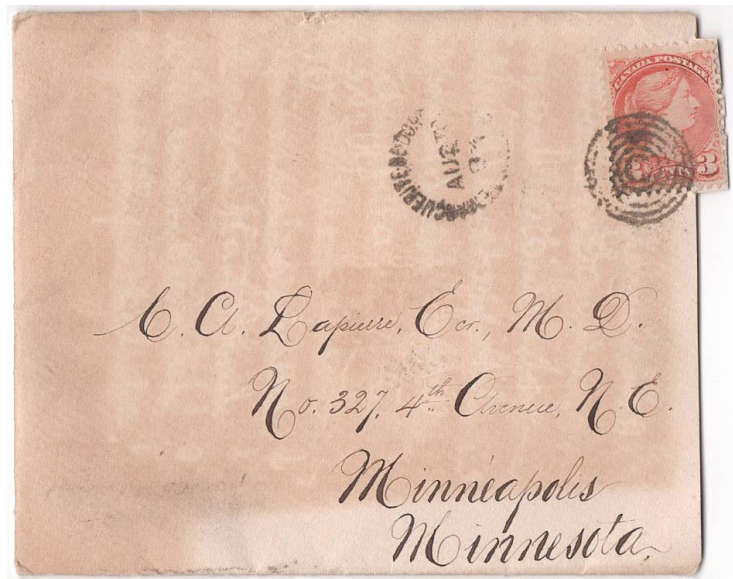 CANADA POSTAGE
3 CENTS 3
AU 27
C. A. Lapierre, Ecr., M. D.
No. 327, 4th Avenue, N. E.
Minnéapolis
Minnesota